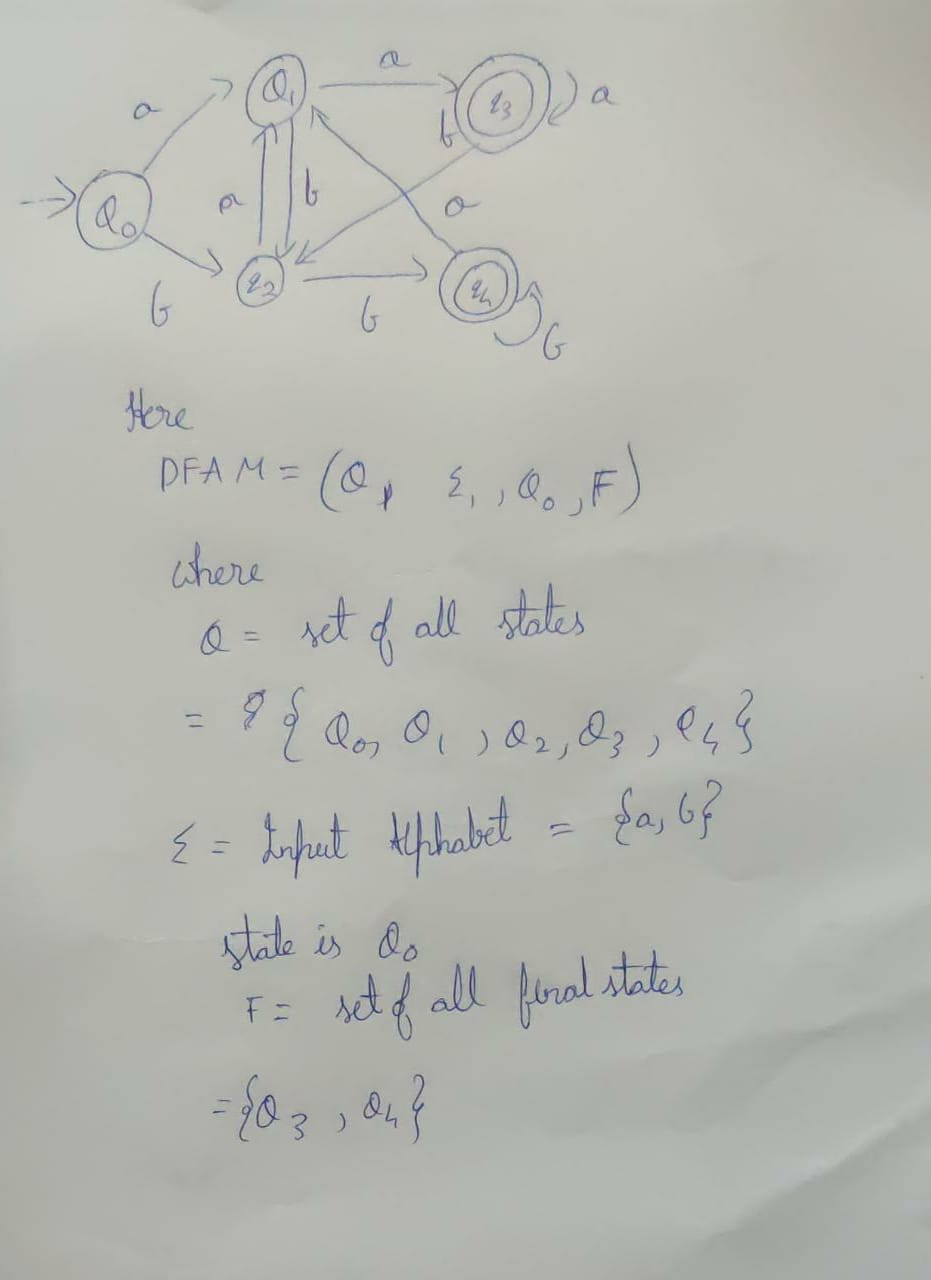 a
Q₁
a
q₃
a
b
Q₀
a
b
a
b
q₂
b
q₄
b
Here
DFA M = (Q, Σ, , Q₀, F)
where
Q = set of all states
= { Q₀, Q₁, Q₂, Q₃, Q₄}
Σ = Input Alphabet = {a, b}
state is Q₀
F = set of all final states
= {Q₃, Q₄}